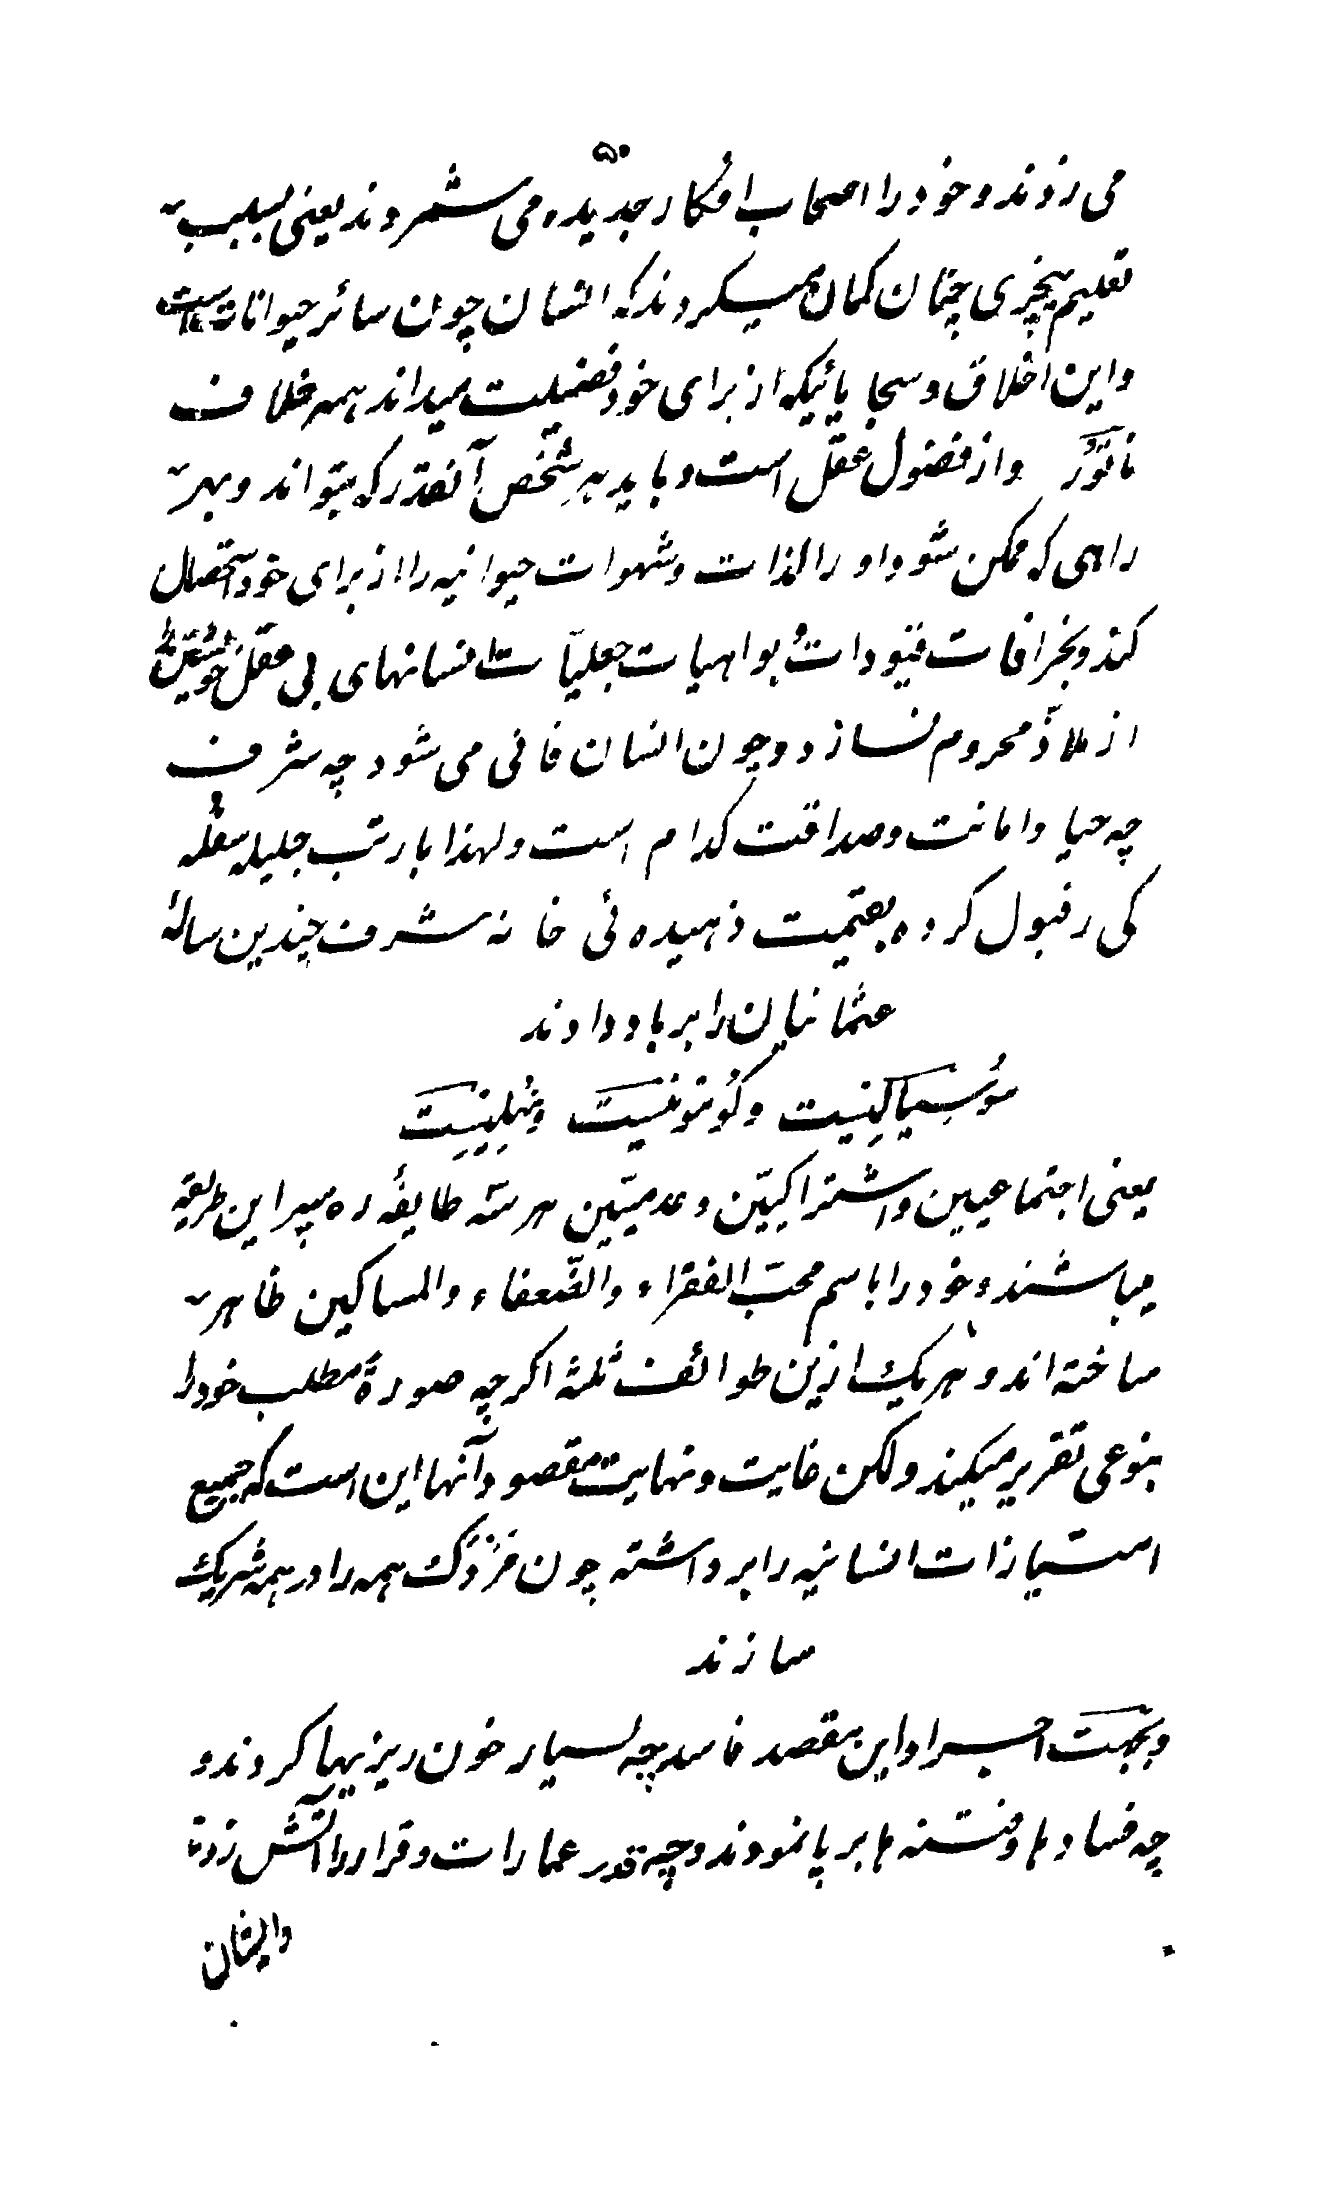 ۵۰
می زدند و خود را اصحاب افکار جدیده می شمردند یعنی بسبب
تعلیم نیچری چنان گمان میکردند که انسان چون سائر حیوانات است
و این اخلاق و سجایائیکه از برای خود فضیلت میداند همه خلاف
ناتور و از فضول عقل است و باید هر شخص آنقدر که بتواند و بهر
راهی که ممکن شود او را لذات و شهوات حیوانیه را از برای خود استحصال
کند و بخرافات قیودات و بواهیات جعلیّات انسانهای بی عقل خویشتن را
از ملاذّ محروم نسازد و چون انسان فانی می شود چه شرف
چه حیا و امانت و صداقت کدام است و لهذا با رتب جلیله سفله
گی را قبول کرده بقیمت زهیده ئی خانه شرف چندین ساله
عثمانیان را بر باد دادند
سوسیالیست و کومونیست و نهلیست
یعنی اجتماعیین و اشتراکیّین و عدمیّین هر سه طایفه ره سپر این طریقه
میباشند و خود را باسم محبّ الفقراء والضّعفاء والمساکین ظاهر
ساخته اند و هر یک ازین طوائف ثلثه اگرچه صورةً مطلب خود را
بنوعی تقریر میکند ولکن غایت و نهایت مقصود آنها این است که جمیع
امتیازات انسانیه را برداشته چون مزدک همه را در همه شریک
سازند
و بجهت اجراء این مقصد فاسد چه بسیار خون ریزیها کردند و
چه فسادها و فتنه ها بر پا نمودند و چه قدر عمارات و قرا را آتش زدند
و ایشان